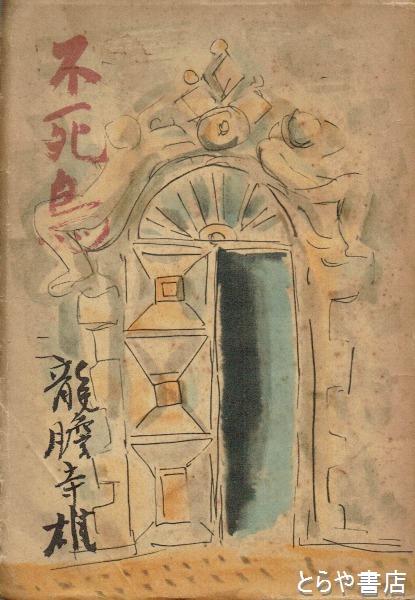 不死鳥
龍膽寺雄
とらや書店